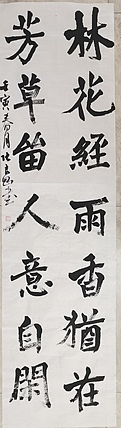 林花經雨香猶在
芳草留人意自閑
壬寅